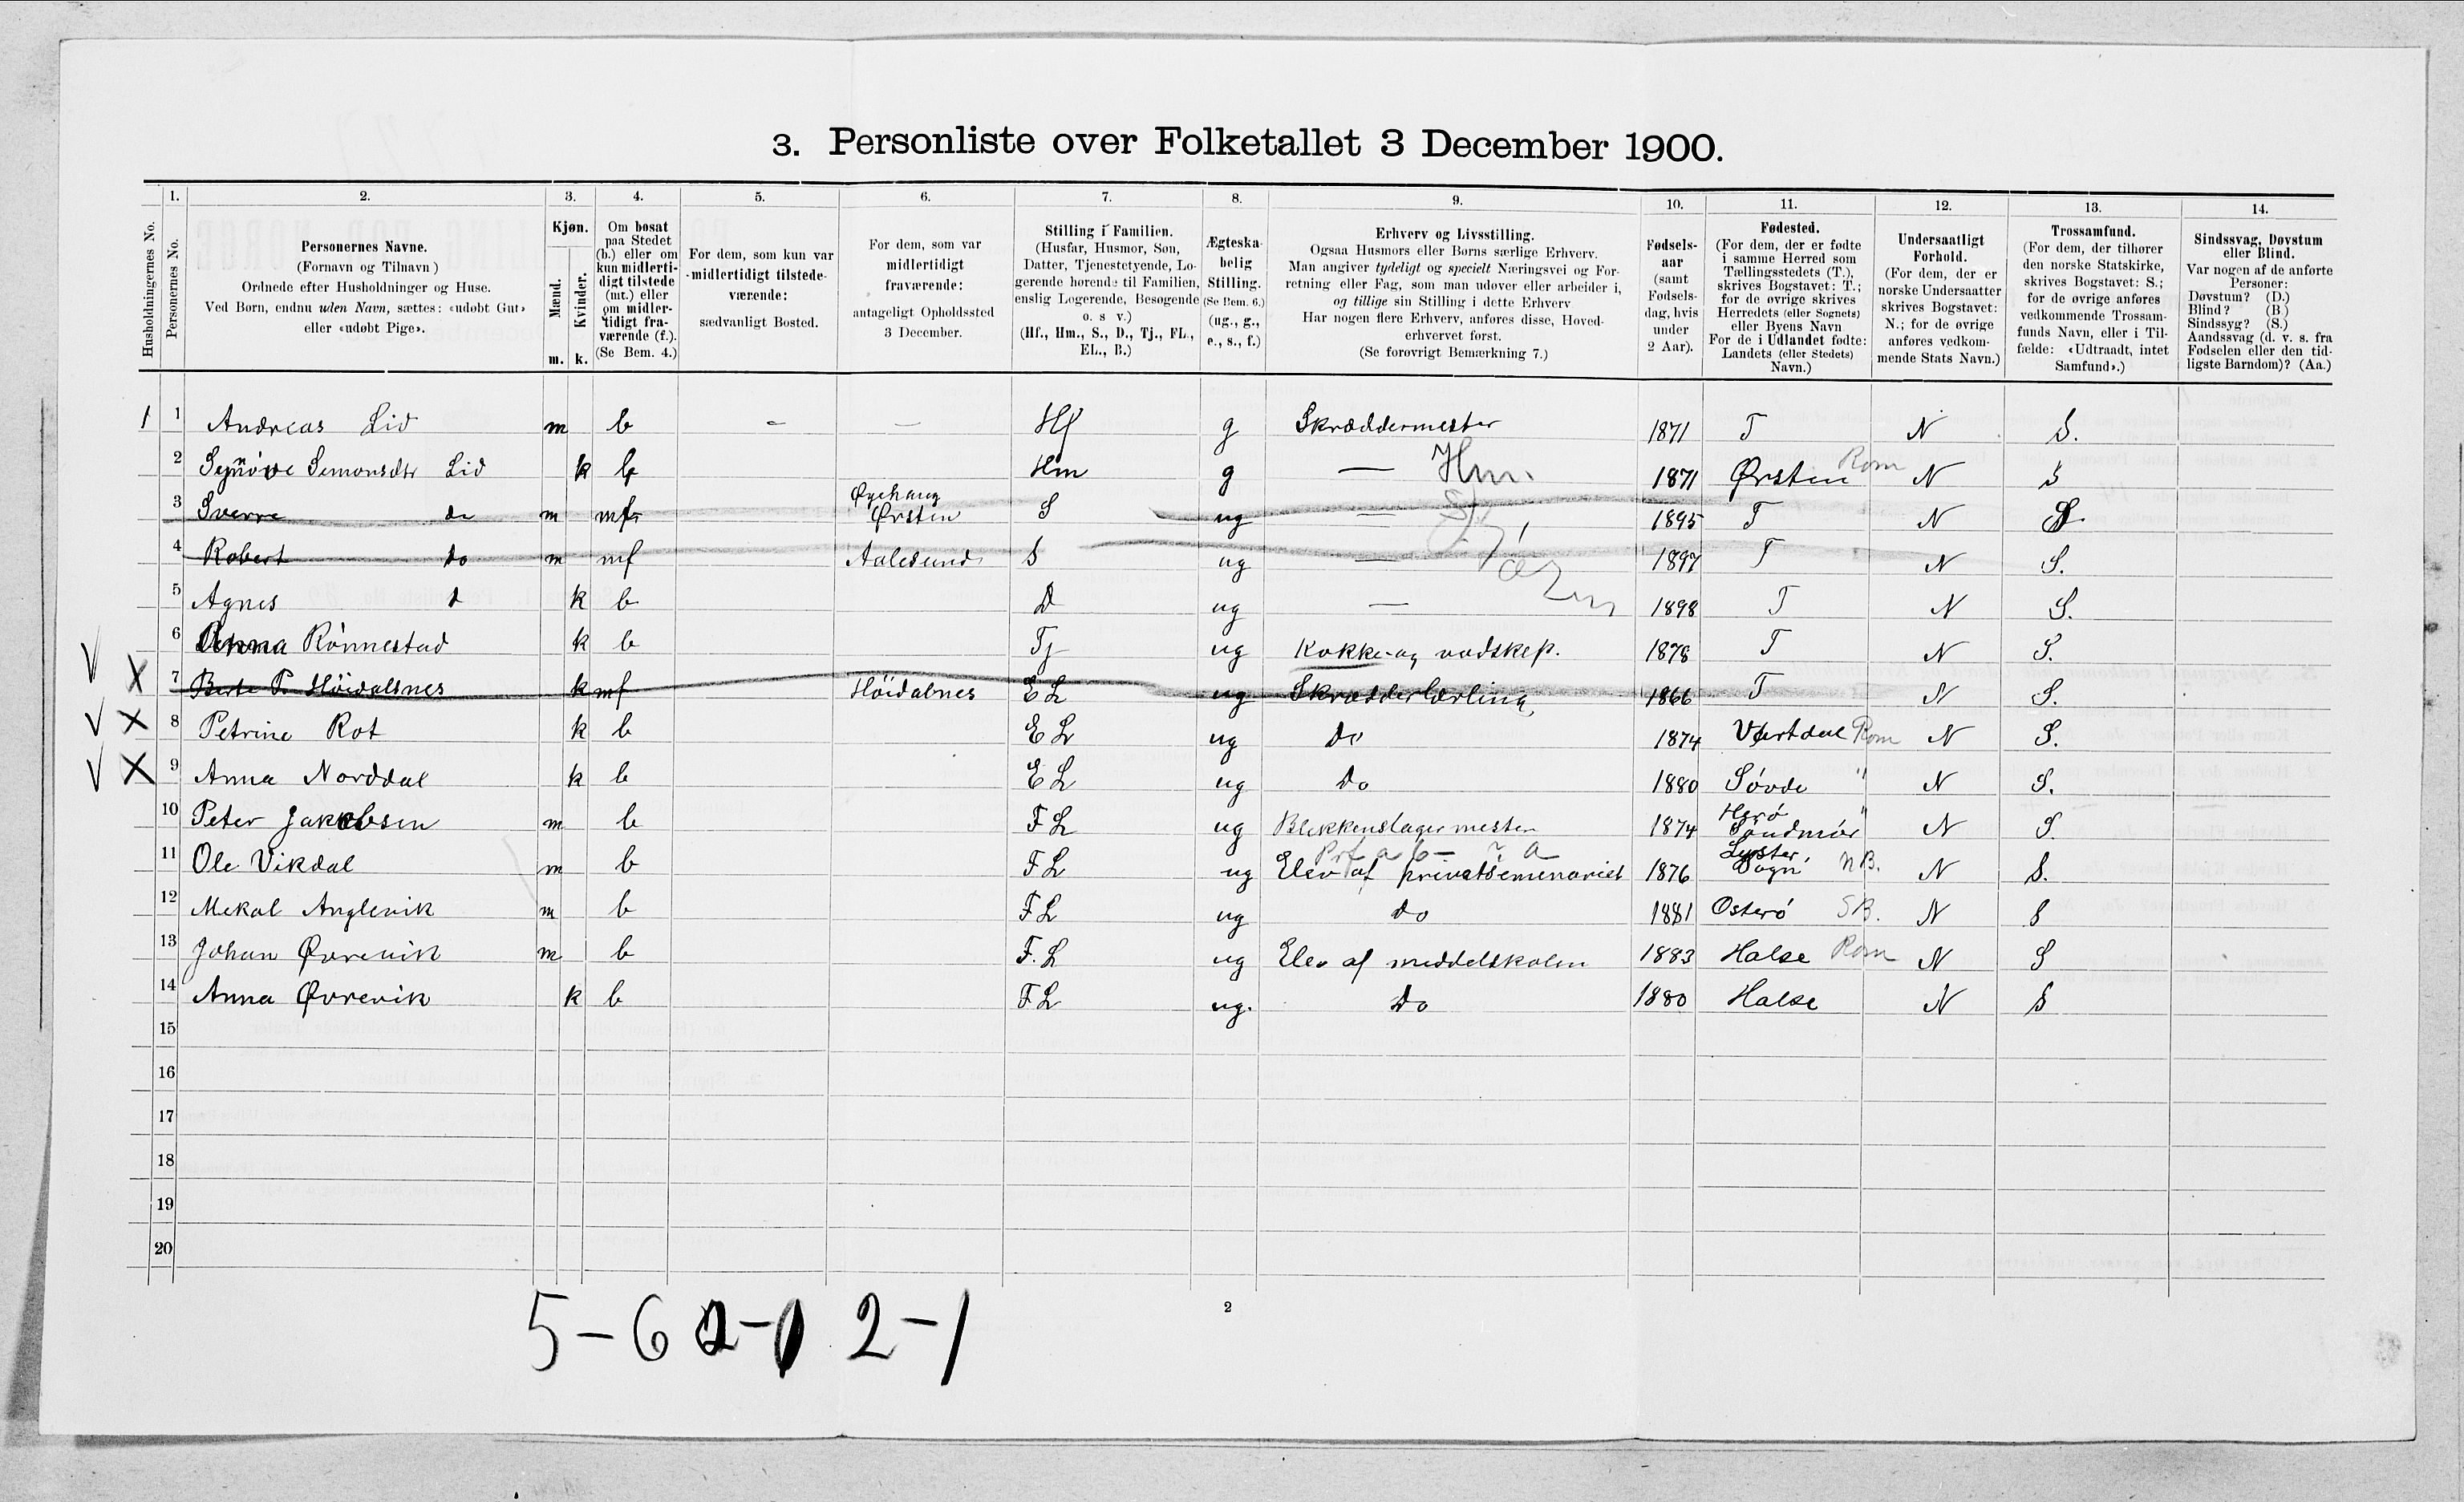 3. Personliste over Folketallet 3 December 1900.
Husholdningernes No.
1. Personernes No.
2. Personernes Navne.
(Fornavn og Tilnavn)
Ordnede efter Husholdninger og Huse.
Ved Børn, endnu uden Navn, sættes: «udøbt Gut»
eller «udøbt Pige».
3. Kjøn.
Mænd. m.
Kvinder. k.
4. Om bosat
paa Stedet
(b.) eller om
kun midlerti-
digt tilstede
(mt.) eller
om midler-
tidigt fra-
værende (f.).
(Se Bem. 4.)
5. For dem, som kun var
midlertidigt tilstede-
værende:
sædvanligt Bosted.
6. For dem, som var
midlertidigt
fraværende:
antageligt Opholdssted
3 December.
7. Stilling i Familien.
(Husfar, Husmor, Søn,
Datter, Tjenestetyende, Lo-
gerende hørende til Familien,
enslig Logerende, Besøgende
o. s v.)
(Hf., Hm., S., D., Tj., FL.,
EL., B.)
8. Ægteska-
belig
Stilling.
(Se Bem. 6.)
(ug., g.,
e., s., f.)
9. Erhverv og Livsstilling.
Ogsaa Husmors eller Børns særlige Erhverv.
Man angiver tydeligt og specielt Næringsvei og For-
retning eller Fag, som man udøver eller arbeider i,
og tillige sin Stilling i dette Erhverv
Har nogen flere Erhverv, anføres disse, Hoved-
erhvervet først.
(Se forøvrigt Bemærkning 7.)
10. Fødsels-
aar
(samt
Fødsels-
dag, hvis
under
2 Aar).
11. Fødested.
(For dem, der er fødte
i samme Herred som
Tællingsstedets (T.),
skrives Bogstavet: T.;
for de øvrige skrives
Herredets (eller Sognets)
eller Byens Navn
For de i Udlandet fødte:
Landets (eller Stedets)
Navn.)
12. Undersaatligt
Forhold.
(For dem, der er
norske Undersaatter
skrives Bogstavet:
N.; for de øvrige
anføres vedkom-
mende Stats Navn.)
13. Trossamfund.
(For dem, der tilhører
den norske Statskirke,
skrives Bogstavet: S.;
for de øvrige anføres
vedkommende Trossam-
funds Navn, eller i Til-
fælde: «Udtraadt, intet
Samfund».)
14. Sindssvag, Døvstum
eller Blind.
Var nogen af de anførte
Personer:
Døvstum? (D.)
Blind? (B.)
Sindssyg? (S.)
Aandssvag (d. v. s. fra
Fødselen eller den tid-
ligste Barndom)? (Aa.)
1 1 Andreas Lid m b - — Hf g Skræddermester 1871 T N S.
2 Synnöve Semonsdtr Lid k b Hm g — Hm. 1871 Ørsten Rom N S
3 Sverre do m mf Ørsten S ug — 1895 T N S.
4 Robert do m mf Aalesund S ug — 1897 T N S.
5 Agnes d k b D ug — 1898 T N S.
6 Anna Rönnestad k b Tj ug Kokke-og vadskep. 1878 T N S.
V X 7 Berte P. Höidalsnes k mf Höidalnes E L ug Skrædderlærling 1866 T N S.
V X 8 Petrine Rot k b E L ug Do 1874 Vartdal Rom N S.
V X 9 Anna Norddal k b E L ug Do 1880 Sövde " N S.
10 Peter Jakobsen m b F L ug Blikkenslagermester 1874 Herö Söndmör " N S.
11 Ole Vikdal m b F L ug Elev af privatsemenariet 1876 Lyster, Sogn NB. N S.
12 Mekal Anglevik m b F L ug do 1881 Osterö SB. N S
13 Johan Øvrevik m b F. L ug Elev af meddelskolen 1883 Halse Rom N S
14 Anna Øvrevik k b F L ug. Do 1880 Halse N S
15
16
17
18
19
20
5 - 6 2 - 1
2